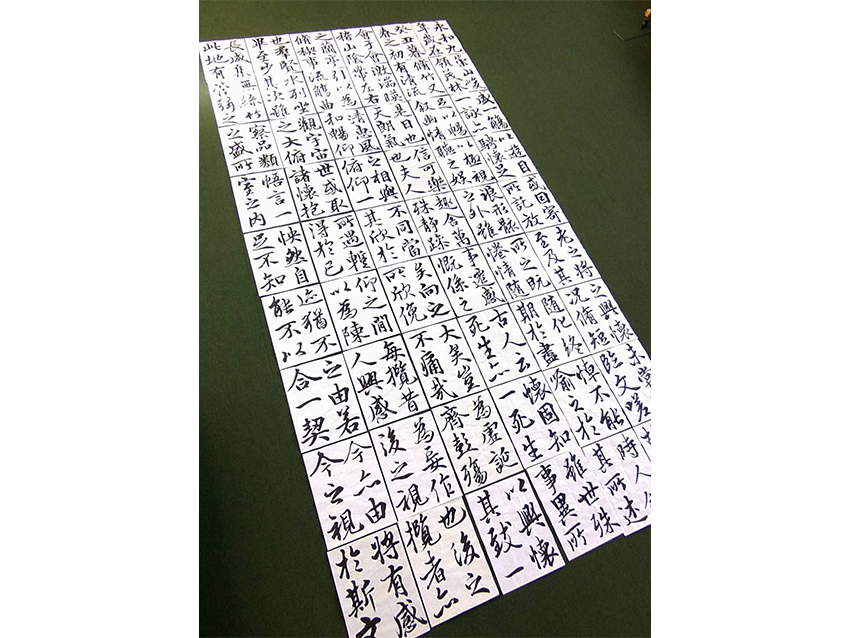 永和九
年歲在
癸丑暮
春之初
會于會
稽山陰
之蘭亭
脩稧事
也羣賢
畢至少
長咸集
此地有
崇山峻
領茂林
脩竹又
有清流
激湍暎
帶左右
引以為
流觴曲
水列坐
其次雖
無絲竹
管弦之
盛一觴
一詠亦
足以暢
叙幽情
是日也
天朗氣
清惠風
和暢仰
觀宇宙
之大俯
察品類
之盛所
以遊目
騁懷足
以極視
聽之娛
信可樂
也夫人
之相與
俯仰一
世或取
諸懷抱
悟言一
室之內
或因寄
所託放
浪形骸
之外雖
趣舍萬
殊靜躁
不同當
其欣於
所遇蹔
得於己
怏然自
足不知
老之將
至及其
所之既
惓情隨
事遷感
慨係之
矣向之
所欣俛
仰之閒
以為陳
迹猶不
能不以
之興懷
況脩短
隨化終
期於盡
古人云
死生亦
大矣豈
不痛哉
每攬昔
人興感
之由若
合一契
未嘗
臨文嗟
悼不能
喻之於
懷固知
一死生
為虛誕
齊彭殤
為妄作
後之視
今亦由
今之視
時人
其所述
雖世殊
事異所
以興懷
其致一
也後之
攬者亦
將有感
於斯文